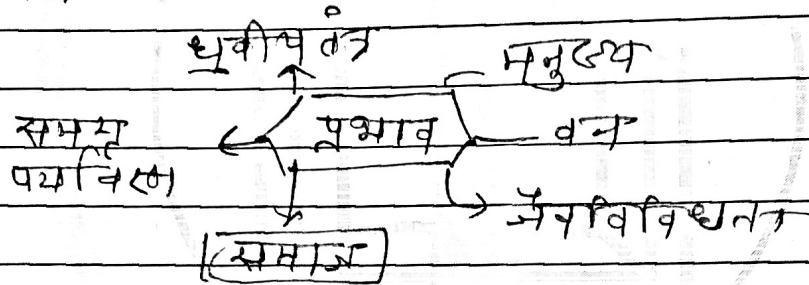 ध्रुवीय तंत्र
मनुष्य
समग्र
पर्यावरण
प्रभाव
वन
जैवविविधता
समाज